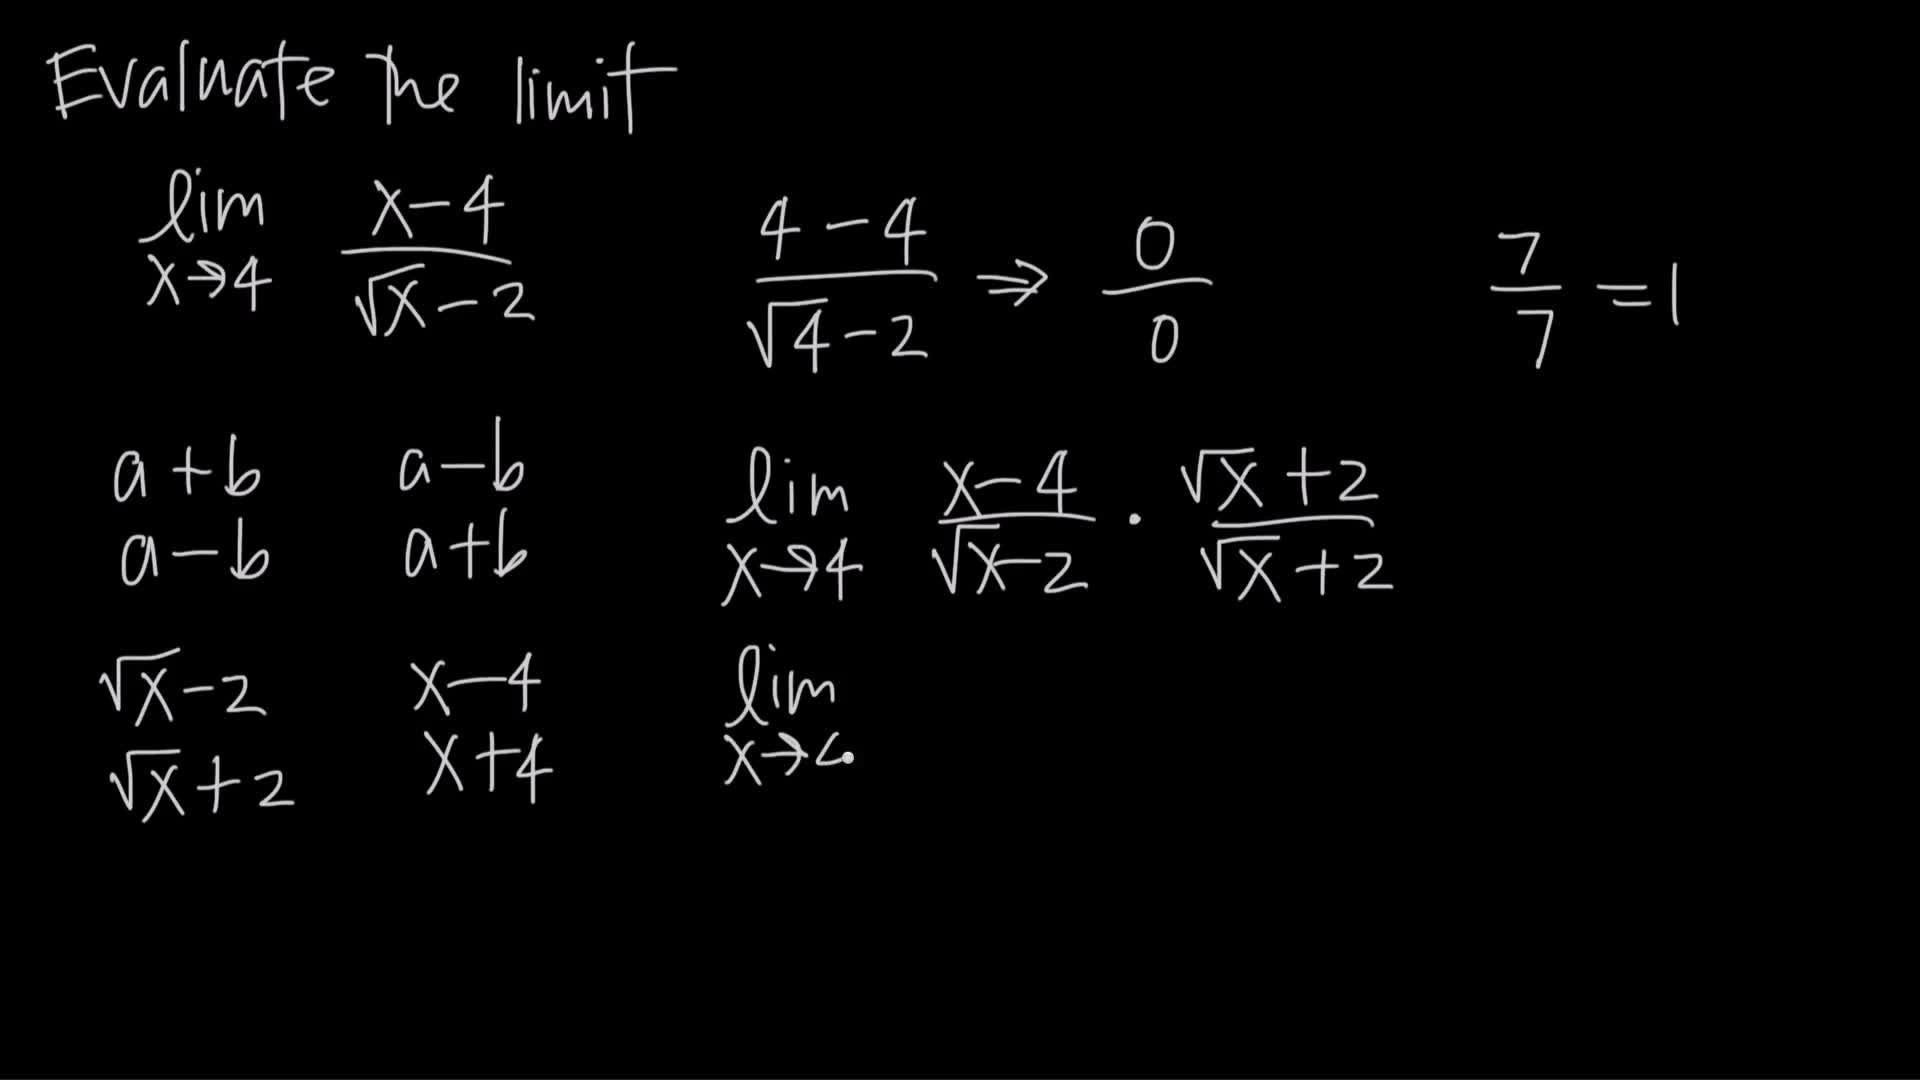 Evaluate the limit
lim x→4 (x-4)/(√x-2)
(4-4)/(√4-2) ⇒ 0/0
7/7 = 1
a+b
a-b
a-b
a+b
lim x→4 (x-4)/(√x-2) · (√x+2)/(√x+2)
√x-2
√x+2
x-4
x+4
lim x→